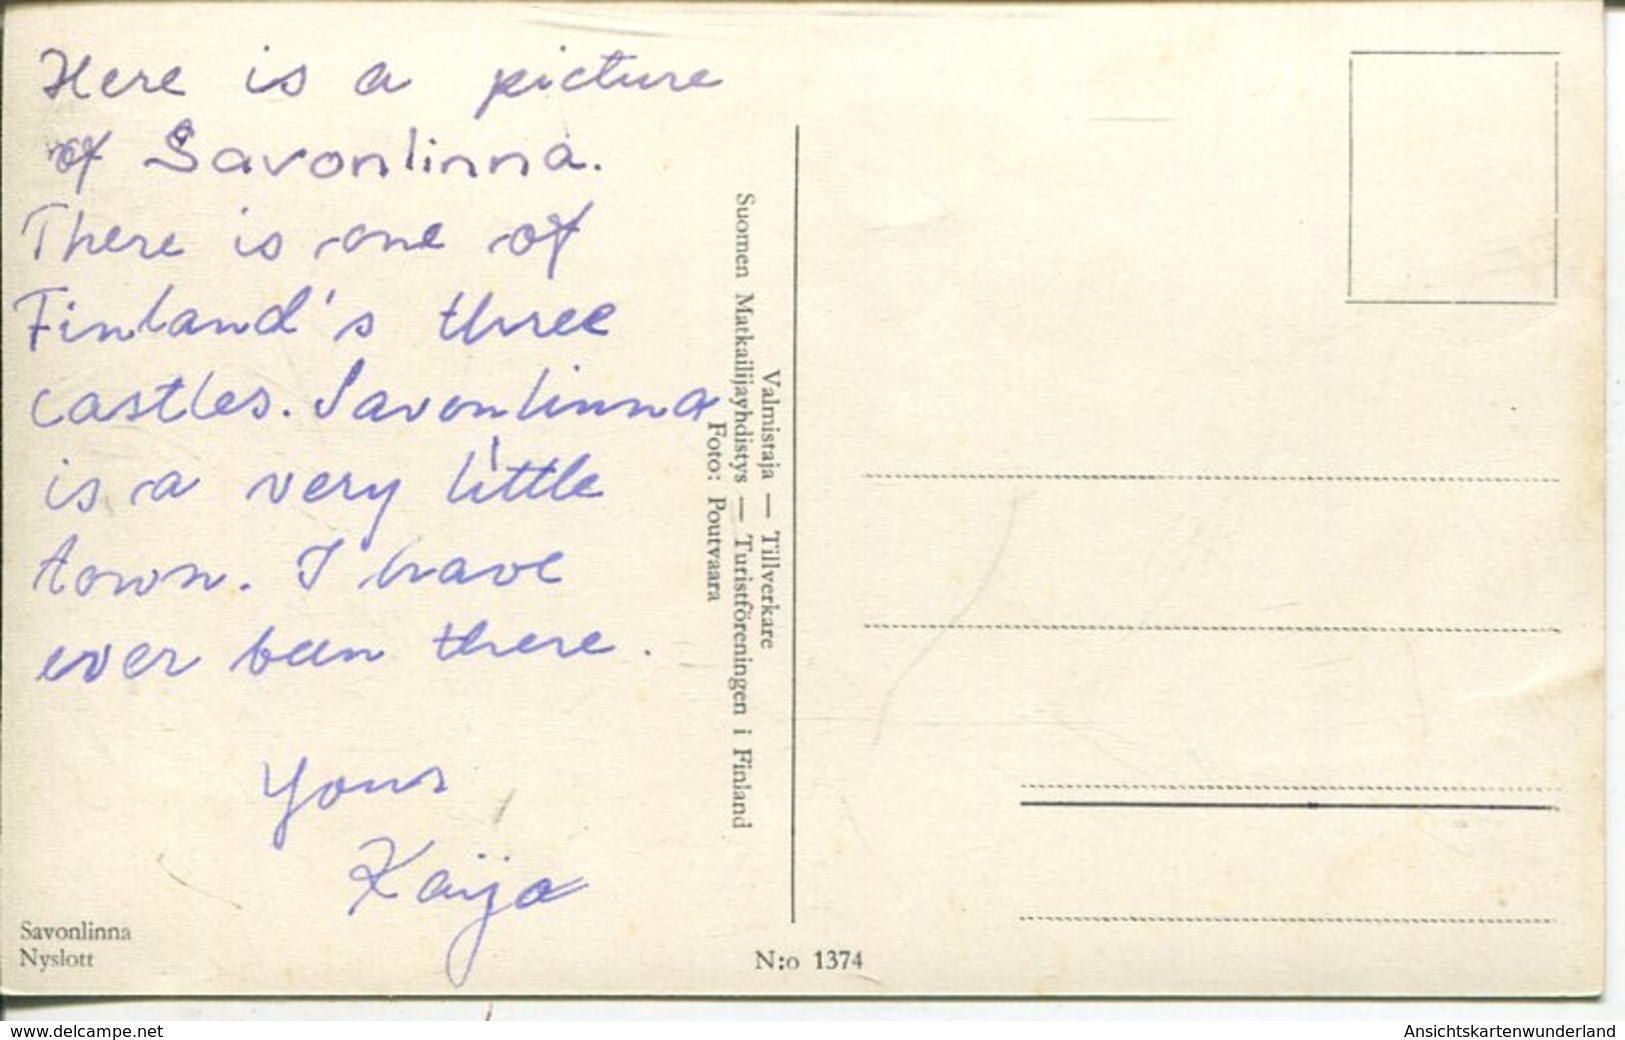 Here is a picture
of Savonlinna.
There is one of
Finland's three
castles. Savonlinna
is a very little
town. I have
ever been there.
Yours
Kaija
Savonlinna
Nyslott
Valmistaja — Tillverkare
Suomen Matkailijayhdistys — Turistföreningen i Finland
Foto: Poutvaara
N:o 1374
www.delcampe.net
Ansichtskartenwunderland